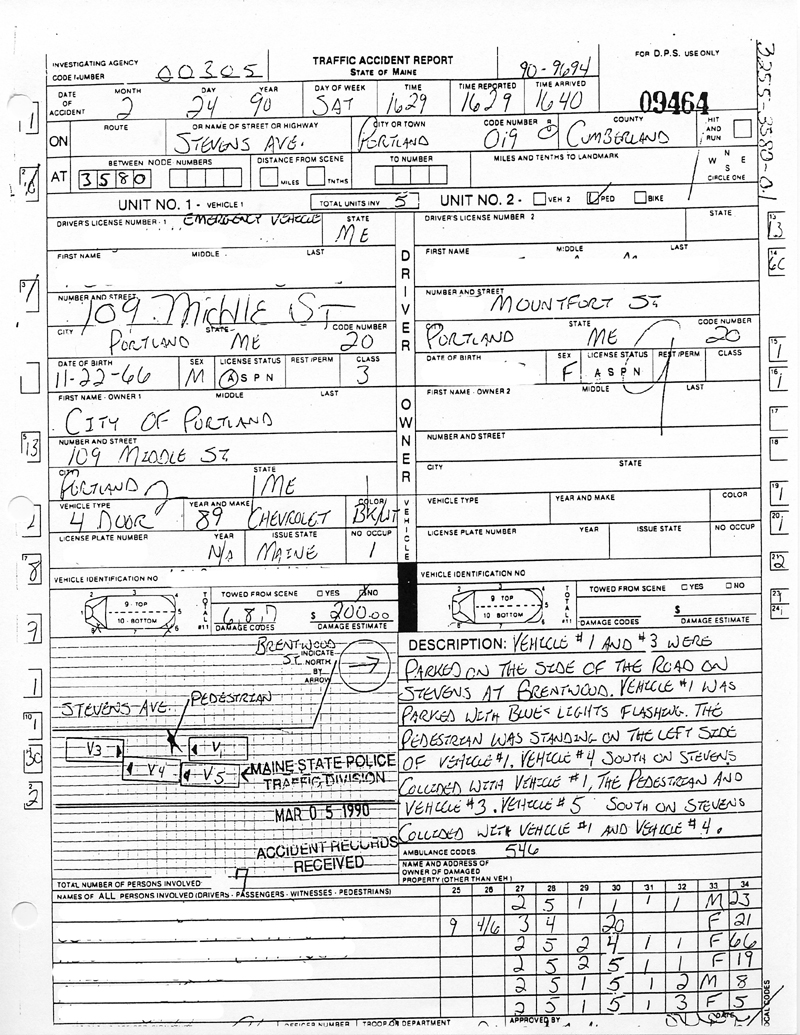 INVESTIGATING AGENCY
CODE NUMBER 00305
TRAFFIC ACCIDENT REPORT
STATE OF MAINE
90-9694
FOR D.P.S. USE ONLY
3255-3580-0.1
DATE OF ACCIDENT
MONTH DAY YEAR DAY OF WEEK TIME TIME REPORTED TIME ARRIVED
2 24 90 SAT 1629 1629 1640
09464
ON
ROUTE OR NAME OF STREET OR HIGHWAY CITY OR TOWN CODE NUMBER COUNTY HIT AND RUN
STEVENS AVE. PORTLAND 019 CUMBERLAND
AT
BETWEEN NODE NUMBERS DISTANCE FROM SCENE TO NUMBER MILES AND TENTHS TO LANDMARK
3580 MILES TNTHS
N E W S
CIRCLE ONE
UNIT NO. 1 - VEHICLE 1 TOTAL UNITS INV 5 UNIT NO. 2 - VEH 2 PED BIKE
DRIVER'S LICENSE NUMBER - 1 EMERGENCY VEHICLE STATE ME
DRIVER'S LICENSE NUMBER 2 STATE
FIRST NAME MIDDLE LAST
FIRST NAME MIDDLE LAST
DRIVER
NUMBER AND STREET
109 MIDDLE ST
NUMBER AND STREET
MOUNTFORT ST.
CITY STATE CODE NUMBER
PORTLAND ME 20
CITY STATE CODE NUMBER
PORTLAND ME 20
DATE OF BIRTH SEX LICENSE STATUS REST/PERM CLASS
11-22-66 M A S P N 3
DATE OF BIRTH SEX LICENSE STATUS REST/PERM CLASS
F A S P N
FIRST NAME - OWNER 1 MIDDLE LAST
CITY OF PORTLAND
FIRST NAME - OWNER 2 MIDDLE LAST
OWNER
NUMBER AND STREET
109 MIDDLE ST.
NUMBER AND STREET
CITY STATE
PORTLAND ME
CITY STATE
VEHICLE
VEHICLE TYPE YEAR AND MAKE COLOR
4 DOOR 89 CHEVROLET BK/WT
VEHICLE TYPE YEAR AND MAKE COLOR
LICENSE PLATE NUMBER YEAR ISSUE STATE NO OCCUP
N/A MAINE 1
LICENSE PLATE NUMBER YEAR ISSUE STATE NO OCCUP
VEHICLE IDENTIFICATION NO
VEHICLE IDENTIFICATION NO
2 3 4 9 - TOP 1 5 10 - BOTTOM 8 7 6
TOTAL #11
TOWED FROM SCENE YES NO
6,8,7 $ 200.00
DAMAGE CODES DAMAGE ESTIMATE
2 3 4 9 - TOP 1 5 10 - BOTTOM 8 7 6
TOTAL #11
TOWED FROM SCENE YES NO
$
DAMAGE CODES DAMAGE ESTIMATE
BRENTWOOD ST.
INDICATE NORTH BY ARROW
PEDESTRIAN
STEVENS AVE.
V3 V1
V4 V5
MAINE STATE POLICE
TRAFFIC DIVISION
MAR 05 1990
ACCIDENT RECORDS
RECEIVED
DESCRIPTION: VEHICLE #1 AND #3 WERE
PARKED ON THE SIDE OF THE ROAD ON
STEVENS AT BRENTWOOD. VEHICLE #1 WAS
PARKED WITH BLUES LIGHTS FLASHING. THE
PEDESTRIAN WAS STANDING ON THE LEFT SIDE
OF VEHICLE #1. VEHICLE #4 SOUTH ON STEVENS
COLLIDED WITH VEHICLE #1, THE PEDESTRIAN AND
VEHICLE #3. VEHICLE #5 SOUTH ON STEVENS
COLLIDED WITH VEHICLE #1 AND VEHICLE #4.
AMBULANCE CODES 546
NAME AND ADDRESS OF OWNER OF DAMAGED PROPERTY (OTHER THAN VEH)
TOTAL NUMBER OF PERSONS INVOLVED 7
NAMES OF ALL PERSONS INVOLVED (DRIVERS - PASSENGERS - WITNESSES - PEDESTRIANS)
25 26 27 28 29 30 31 32 33 34
2 5 1 1 1 1 M 23
9 4/6 3 4 20 F 21
2 5 2 4 1 1 F 66
2 5 2 5 1 1 F 19
2 5 1 5 1 2 M 8
2 5 1 5 1 3 F 5
OFFICER NUMBER TROOP OR DEPARTMENT APPROVED BY